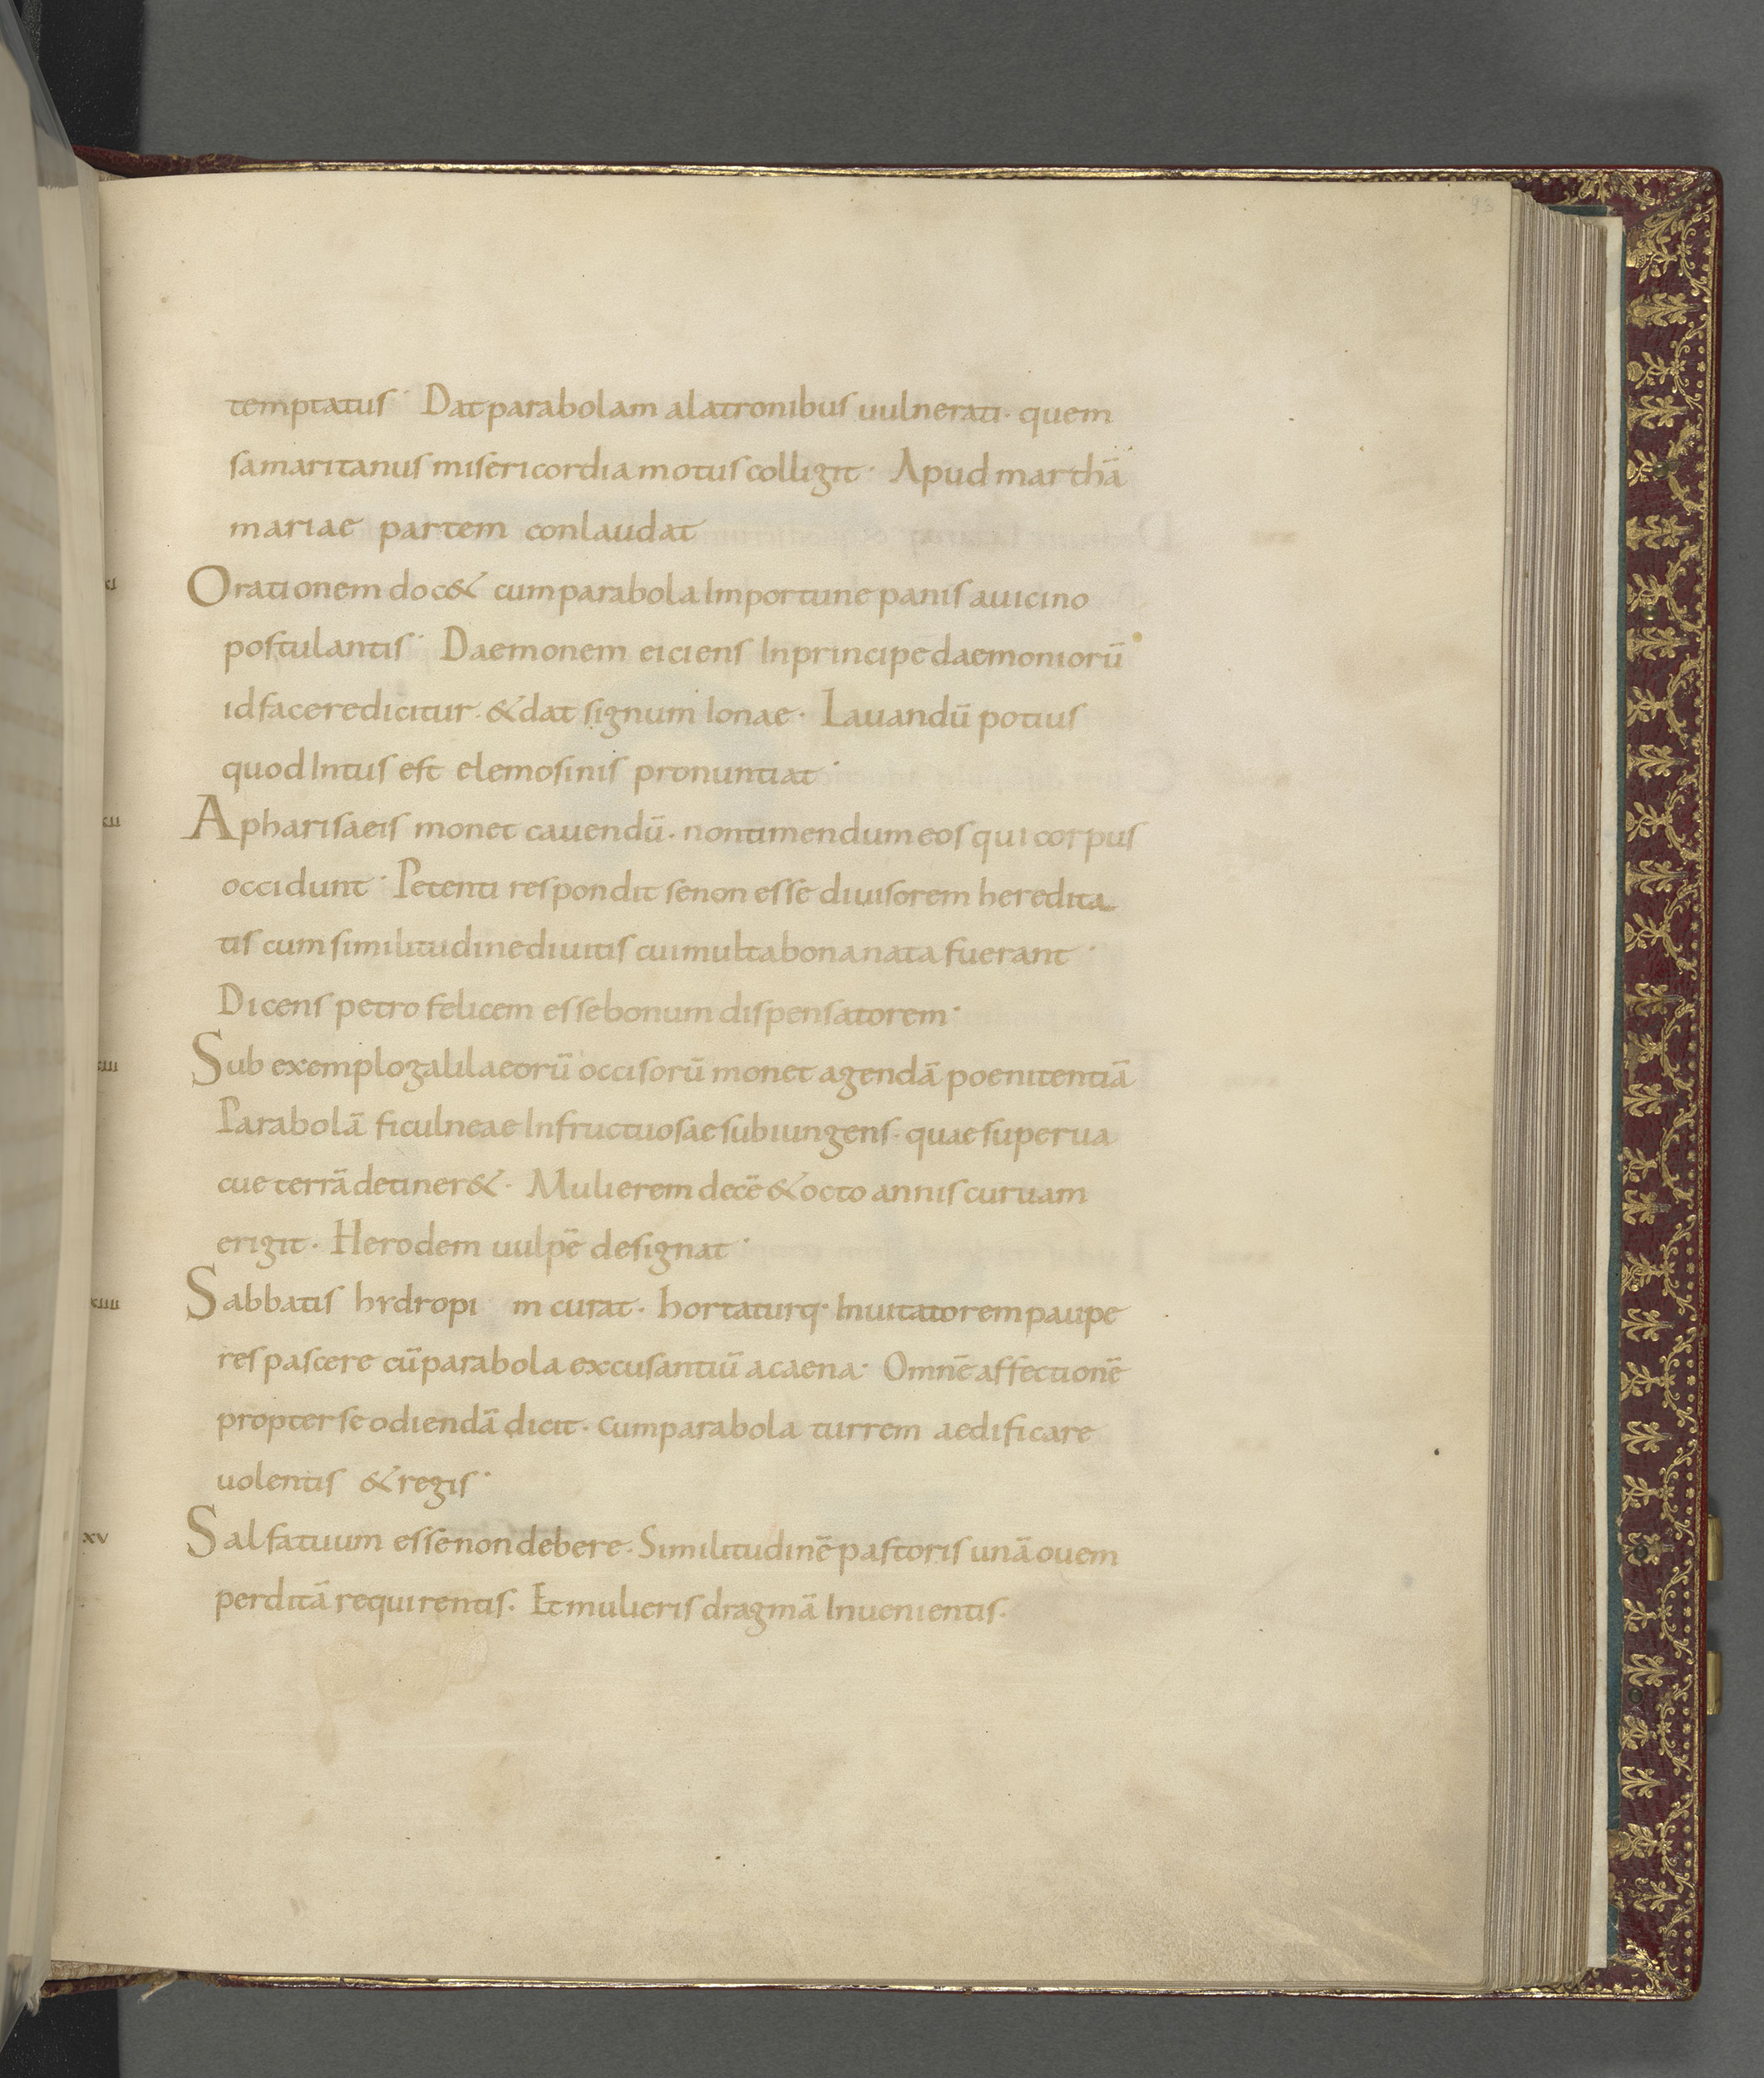 93
temptatus· Dat parabolam alatronibus uulnerati· quem
samaritanus misericordia motus colligit· Apud marthā
mariae partem conlaudat
XI Orationem doc& cum parabola Importune panis auicino
postulantis· Daemonem eiciens Inprincipe daemoniorū
id facere dicitur· & dat signum Ionae· Lauandū potius
quod Intus est elemosinis pronuntiat·
XII A pharisaeis monet cauendū· non timendum eos qui corpus
occidunt· Petenti respondit se non esse diuisorem heredita
tis cum similitudine diuitis cui multa bona nata fuerant·
Dicens petro felicem esse bonum dispensatorem·
XIII Sub exemplo galilaeorū occisorū monet agendā poenitentiā
Parabolā ficulneae Infructuosae subiungens· quae superua
cue terrā detiner&· Mulierem decē & octo annis curuam
erigit· Herodem uulpē designat·
XIIII Sabbatis hydropi m curat· hortaturq· Inuitatorem paupe
res pascere cū parabola excusantiū acaena· Omnē affectionē
propter se odiendā dicit· cum parabola turrem aedificare
uolentis & regis·
XV Sal fatuum esse non debere· Similitudinē pastoris unā ouem
perditā requirentis· Et mulieris dragmā Inuenientis·